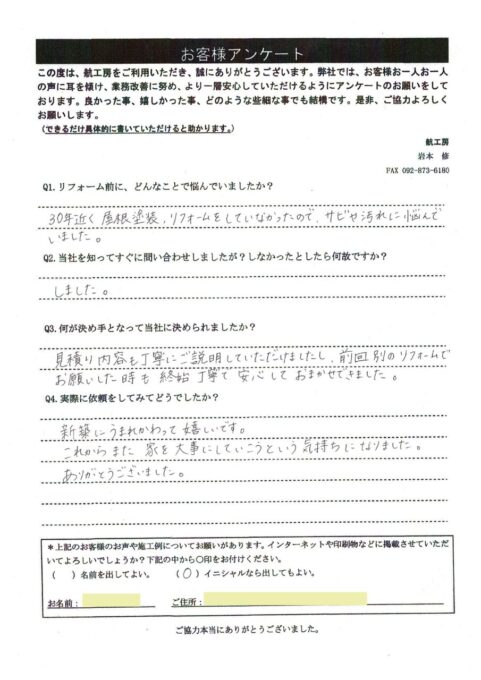 お客様アンケート
この度は、航工房をご利用いただき、誠にありがとうございます。弊社では、お客様お一人お一人
の声に耳を傾け、業務改善に努め、より一層安心していただけるようにアンケートのお願いをして
おります。良かった事、嬉しかった事、どのような些細な事でも結構です。是非、ご協力よろしく
お願いします。
(できるだけ具体的に書いていただけると助かります。)
航工房
岩本 修
FAX 092-873-6180
Q1.リフォーム前に、どんなことで悩んでいましたか?
30年近く屋根塗装、リフォームをしていなかったので、サビや汚れに悩んで
いました。
Q2.当社を知ってすぐに問い合わせしましたが?しなかったとしたら何故ですか?
しました。
Q3.何が決め手となって当社に決められましたか?
見積り内容も丁寧にご説明していただけましたし、前回別のリフォームで
お願いした時も終始丁寧で安心しておまかせできました。
Q4.実際に依頼をしてみてどうでしたか?
新築にうまれかわって嬉しいです。
これからまた家を大事にしていこうという気持ちになりました。
ありがとうございました。
*上記のお客様のお声や施工例についてお願いがあります。インターネットや印刷物などに掲載させていただ
いてよろしいでしょうか?下記の中から○印をお付けください。
( )名前を出してよい。 (○)イニシャルなら出してもよい。
お名前: ご住所:
ご協力本当にありがとうございました。